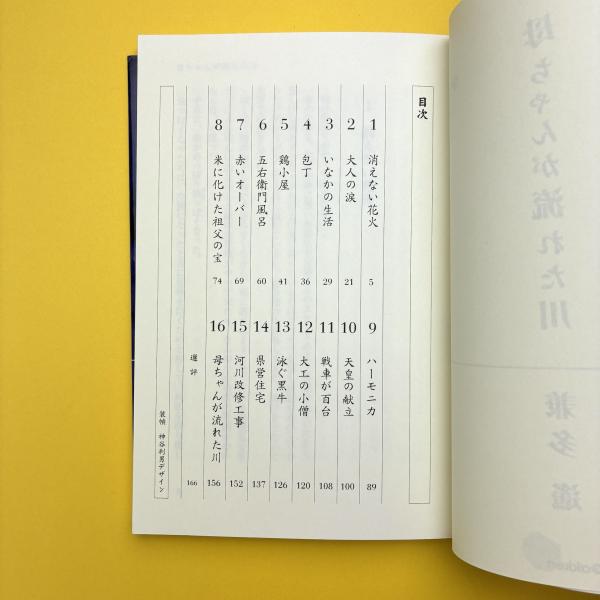 目次
1 消えない花火 5
2 大人の涙 21
3 いなかの生活 29
4 包丁 36
5 鶏小屋 41
6 五右衛門風呂 60
7 赤いオーバー 69
8 米に化けた祖父の宝 74
9 ハーモニカ 89
10 天皇の献立 100
11 戦車が百台 108
12 大工の小僧 120
13 泳ぐ黒牛 126
14 県営住宅 137
15 河川改修工事 152
16 母ちゃんが流れた川 156
選評 166
装幀 神谷利男デザイン
母ちゃんが流れた川
兼多 遥
Gakken